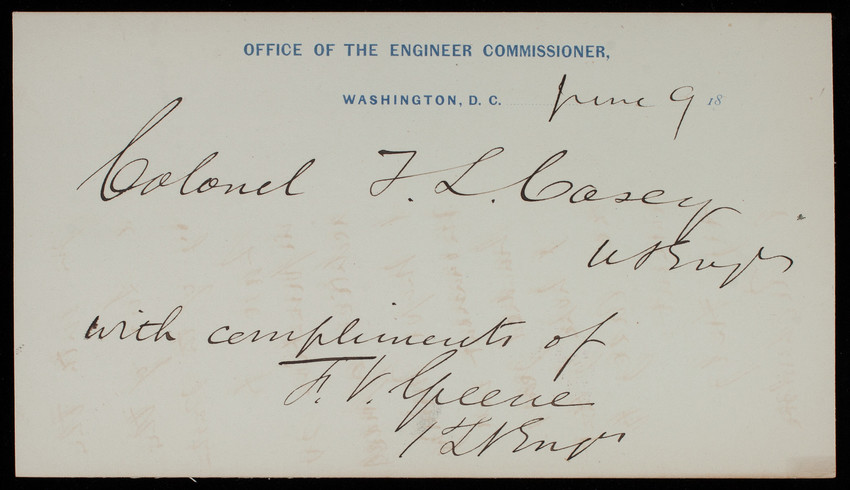 OFFICE OF THE ENGINEER COMMISSIONER,
WASHINGTON, D. C. June 9 18
Colonel T. L. Casey
US Engrs
with compliments of
F. V. Greene
Engrs